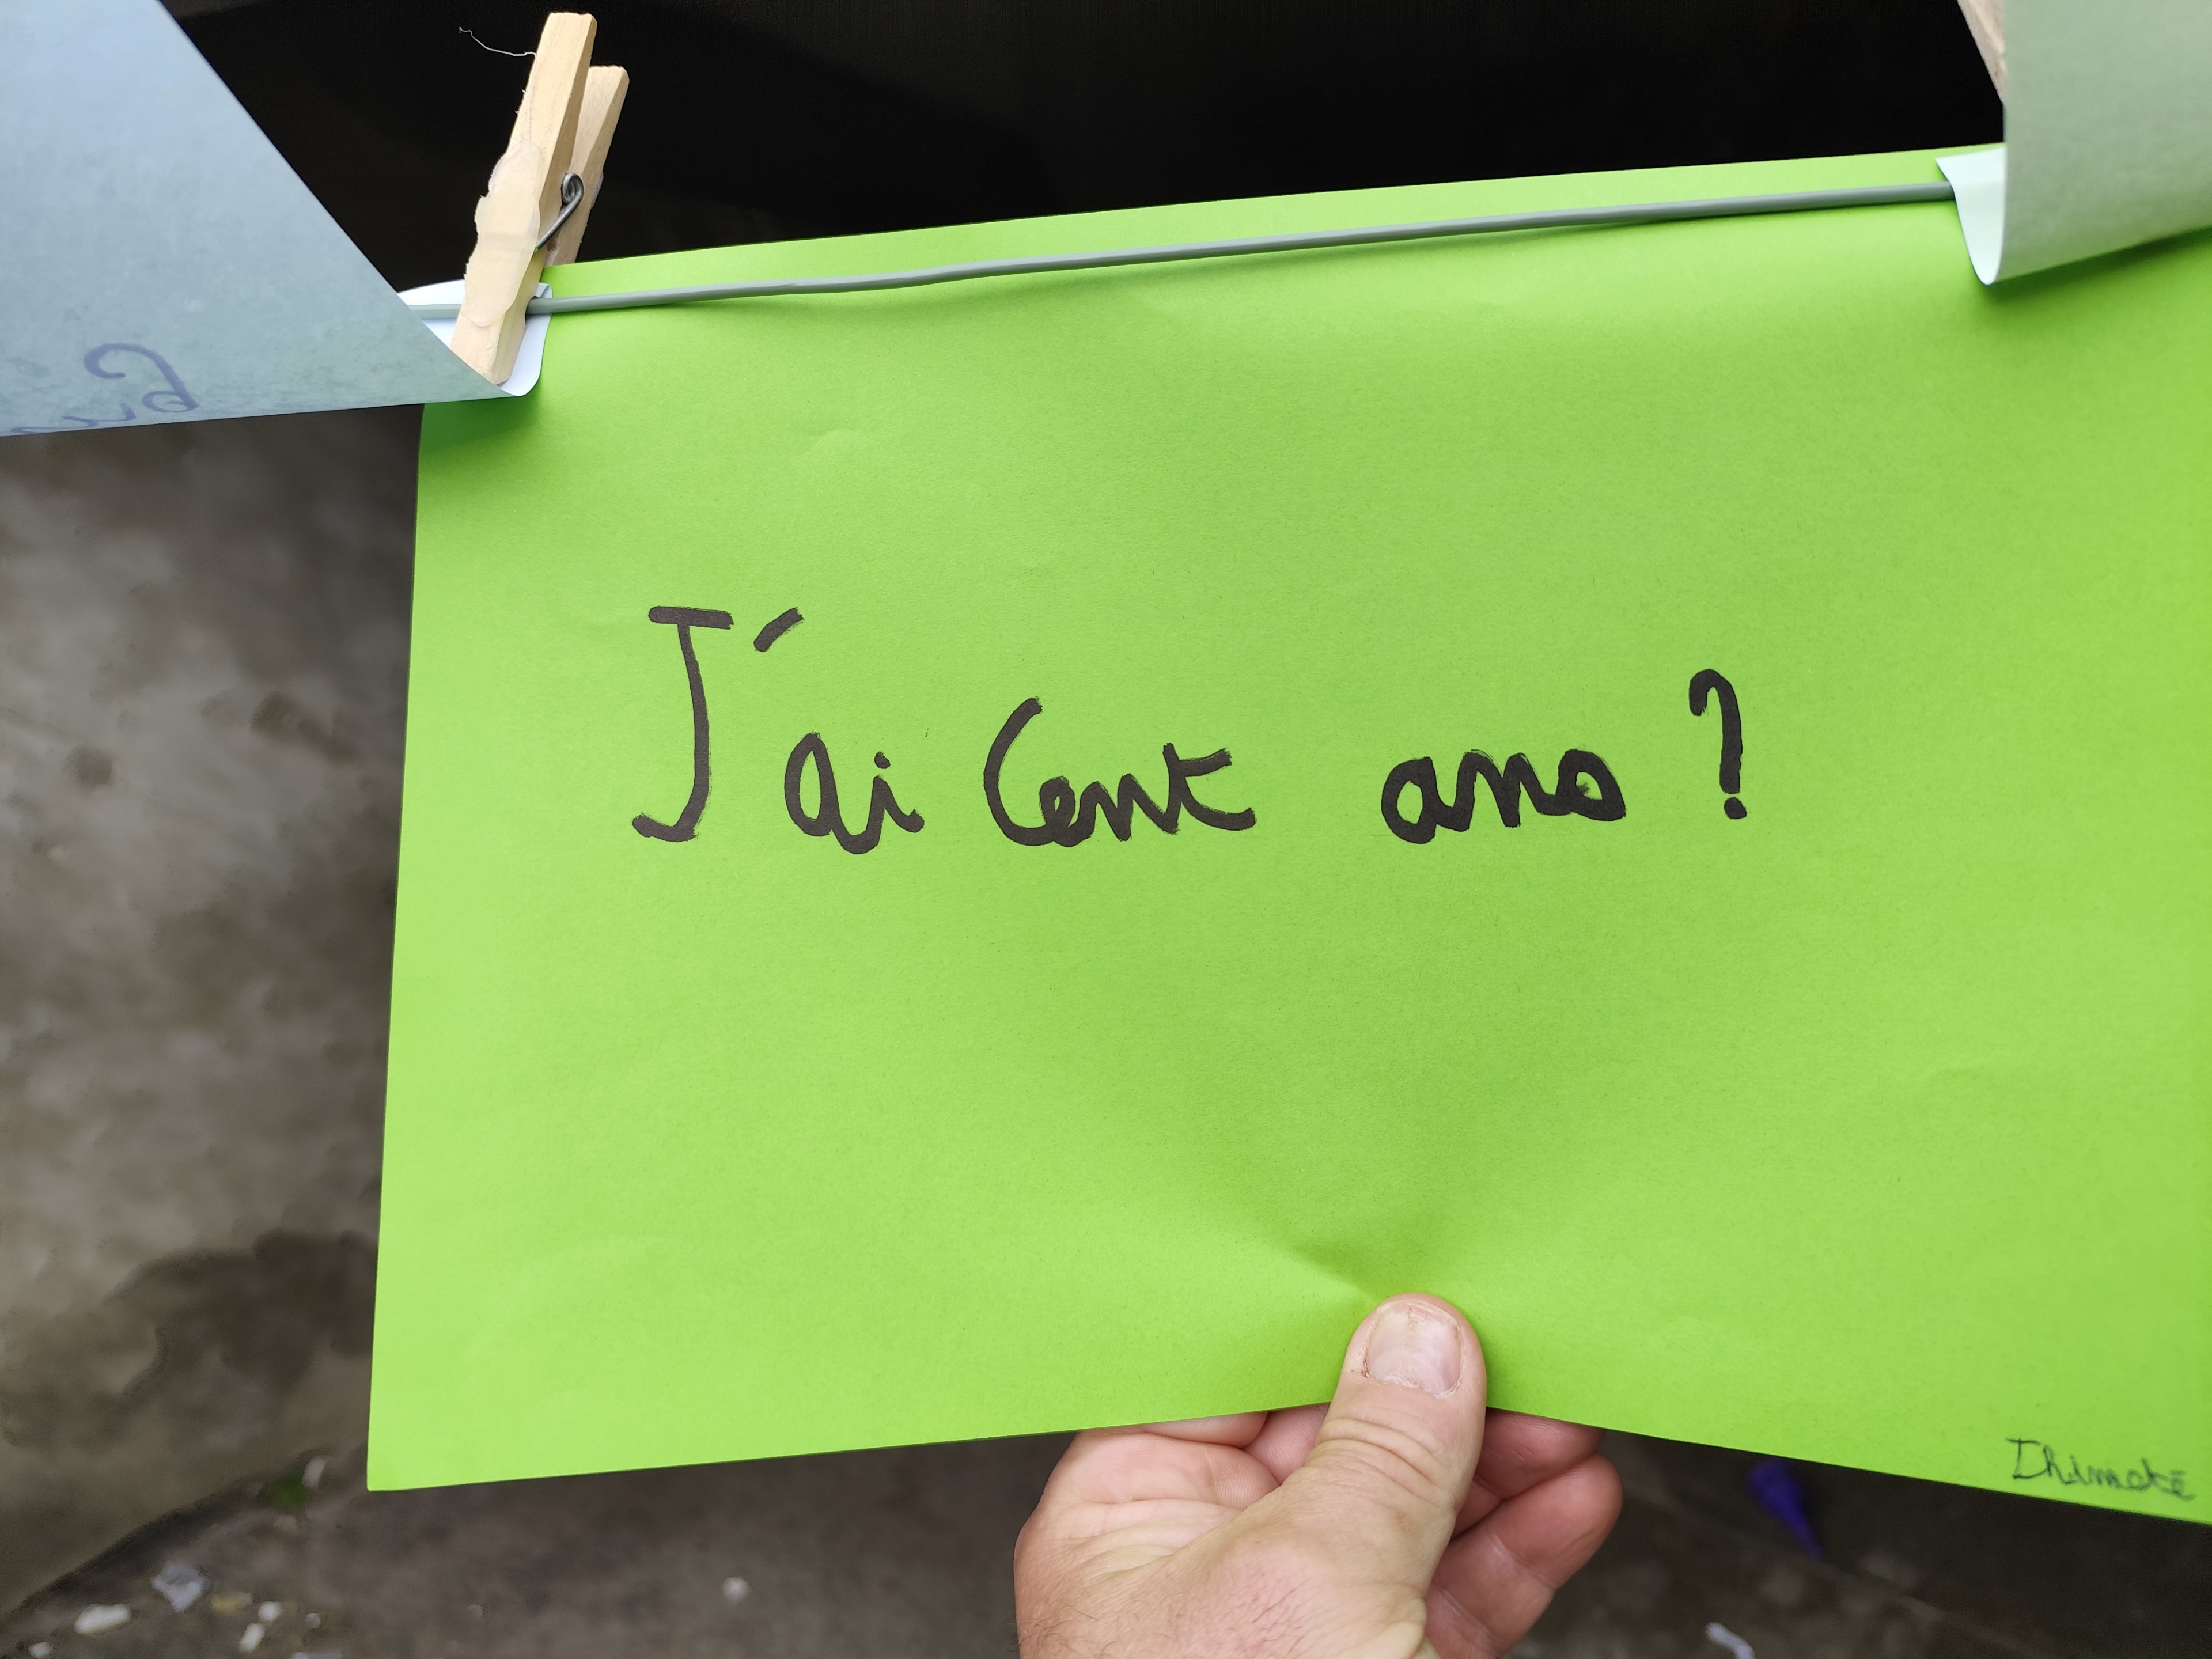 J'ai Cent ans ?
Thimoté